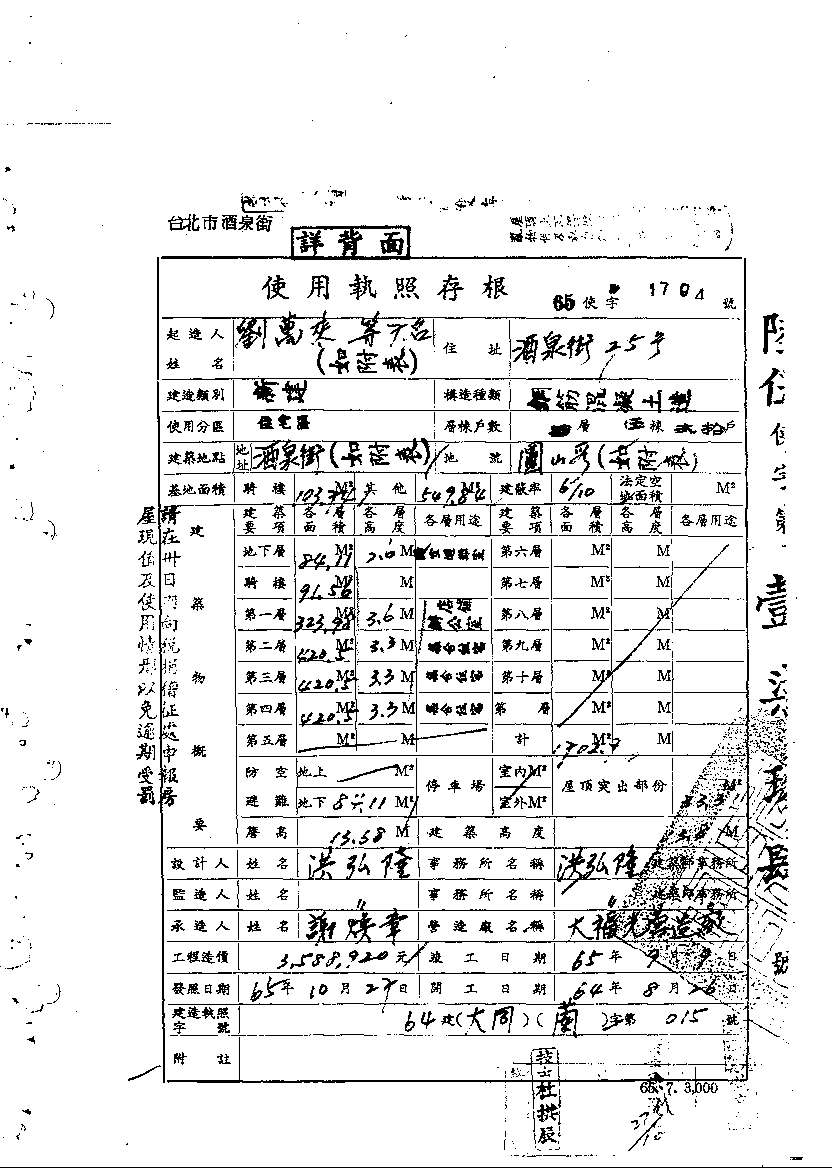 台北市酒泉街
詳背面
使用執照存根
65使字 1704 號
起造人姓名 劉萬來等 (如附表) 住址 酒泉街25号
建造類別 新建 構造種類 鋼筋混凝土造
使用分區 住宅區 層棟戶數 層 伍棟 貳拾戶
建築地點 地址 酒泉街(如附表) 地號 (如附表)
基地面積 騎樓 M² 其他 549.84 M² 建蔽率 6/10 法定空地面積 M²
建築要項 各層面積 各層高度 各層用途 建築要項 各層面積 各層高度 各層用途
地下層 84.11 M² M 第六層 M² M
騎樓 91.56 M² M 第七層 M² M
第一層 323.98 M² 3.6 M 第八層 M² M
第二層 420.5 M² 3.3 M 第九層 M² M
第三層 420.5 M² 3.3 M 第十層 M² M
第四層 420.5 M² 3.3 M 第 層 M² M
第五層 M² M 計 M² M
建築物概要
防空避難 地上 M² 停車場 室內M² 屋頂突出部份 M²
地下 M² 室外M²
簷高 13.58 M 建築高度 M
設計人 姓名 洪弘隆 事務所名稱 洪弘隆 建築師事務所
監造人 姓名 〃 事務所名稱 〃 建築師事務所
承造人 姓名 謝煥章 營造廠名稱
工程造價 3,588,920元 竣工日期 65年9月9日
發照日期 65年10月27日 開工日期 64年8月26日
建造執照字號 64建(大同)(蘭)字第 015 號
附註
65. 7. 3,000
技士杜拱辰
27/10
請在卅日內向稅捐稽征處申報房
屋現值及使用情形以免逾期受罰